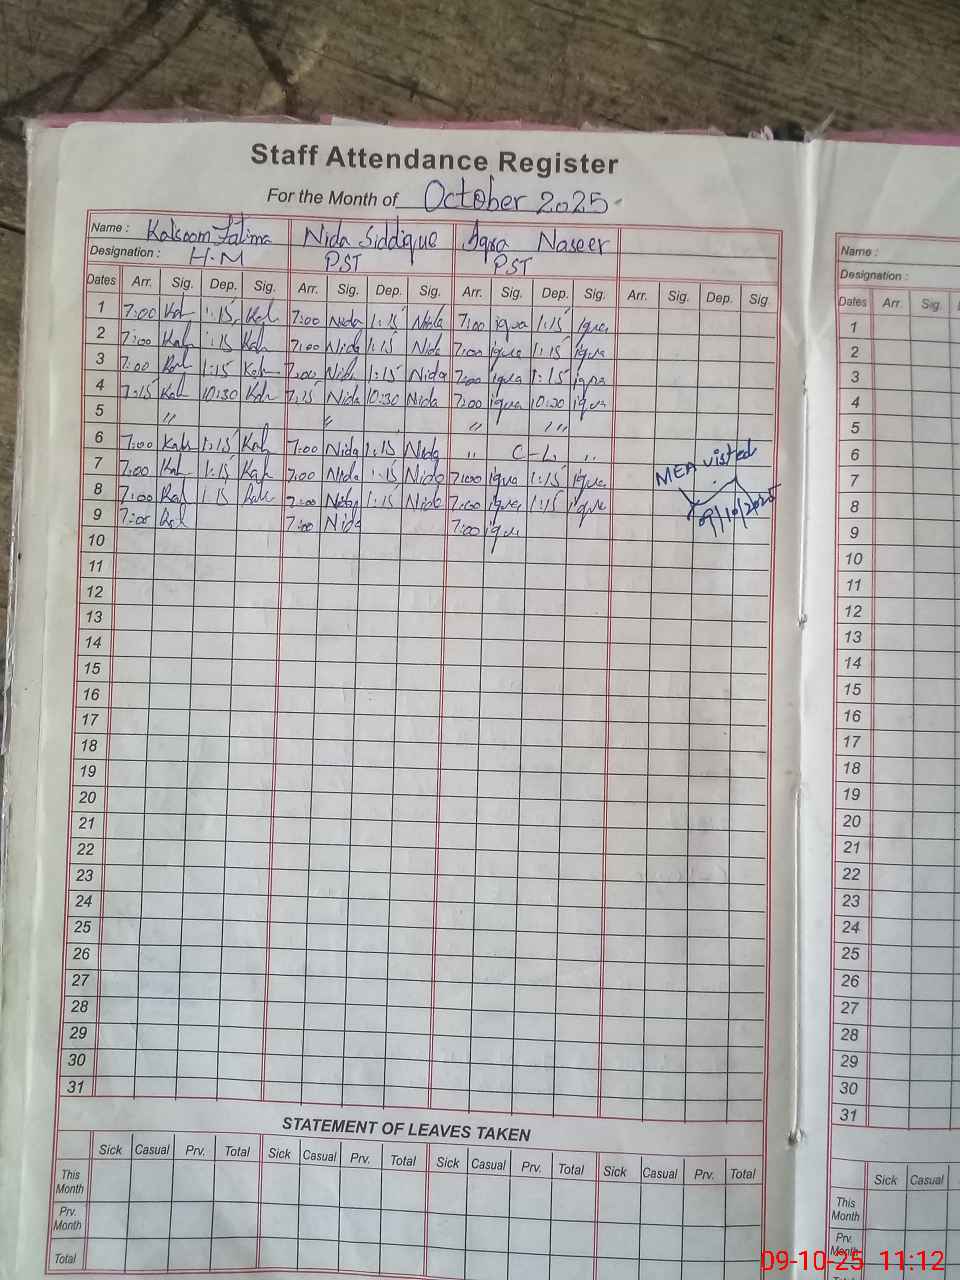 Staff Attendance Register
For the Month of October 2025
Name : Kalsoom Fatima Nida Siddique Iqra Naseer
Designation : H.M PST PST
Dates Arr. Sig. Dep. Sig. Arr. Sig. Dep. Sig. Arr. Sig. Dep. Sig. Arr. Sig. Dep. Sig.
1 7:00 Kal 1:15 Kal 7:00 Nida 1:15 Nida 7:00 iqra 1:15 iqra
2 7:00 Kal 1:15 Kal 7:00 Nida 1:15 Nida 7:00 iqra 1:15 iqra
3 7:00 Kal 1:15 Kal 7:00 Nida 1:15 Nida 7:00 iqra 1:15 iqra
4 7:15 Kal 10:30 Kal 7:15 Nida 10:30 Nida 7:00 iqra 10:30 iqra
5 〃 〃 〃 〃
6 7:00 Kal 1:15 Kal 7:00 Nida 1:15 Nida 〃 C-L 〃
7 7:00 Kal 1:15 Kal 7:00 Nida 1:15 Nida 7:00 iqra 1:15 iqra
8 7:00 Kal 1:15 Kal 7:00 Nida 1:15 Nida 7:00 iqra 1:15 iqra
9 7:00 Kal 7:00 Nida 7:00 iqra
MEA visted
09/10/2025
10
11
12
13
14
15
16
17
18
19
20
21
22
23
24
25
26
27
28
29
30
31
STATEMENT OF LEAVES TAKEN
Sick Casual Prv. Total Sick Casual Prv. Total Sick Casual Prv. Total Sick Casual Prv. Total
This Month
Prv. Month
Total
Name :
Designation :
Dates Arr. Sig. Dep.
1
2
3
4
5
6
7
8
9
10
11
12
13
14
15
16
17
18
19
20
21
22
23
24
25
26
27
28
29
30
31
Sick Casual
This Month
Prv. Month
Total
09-10-25 11:12